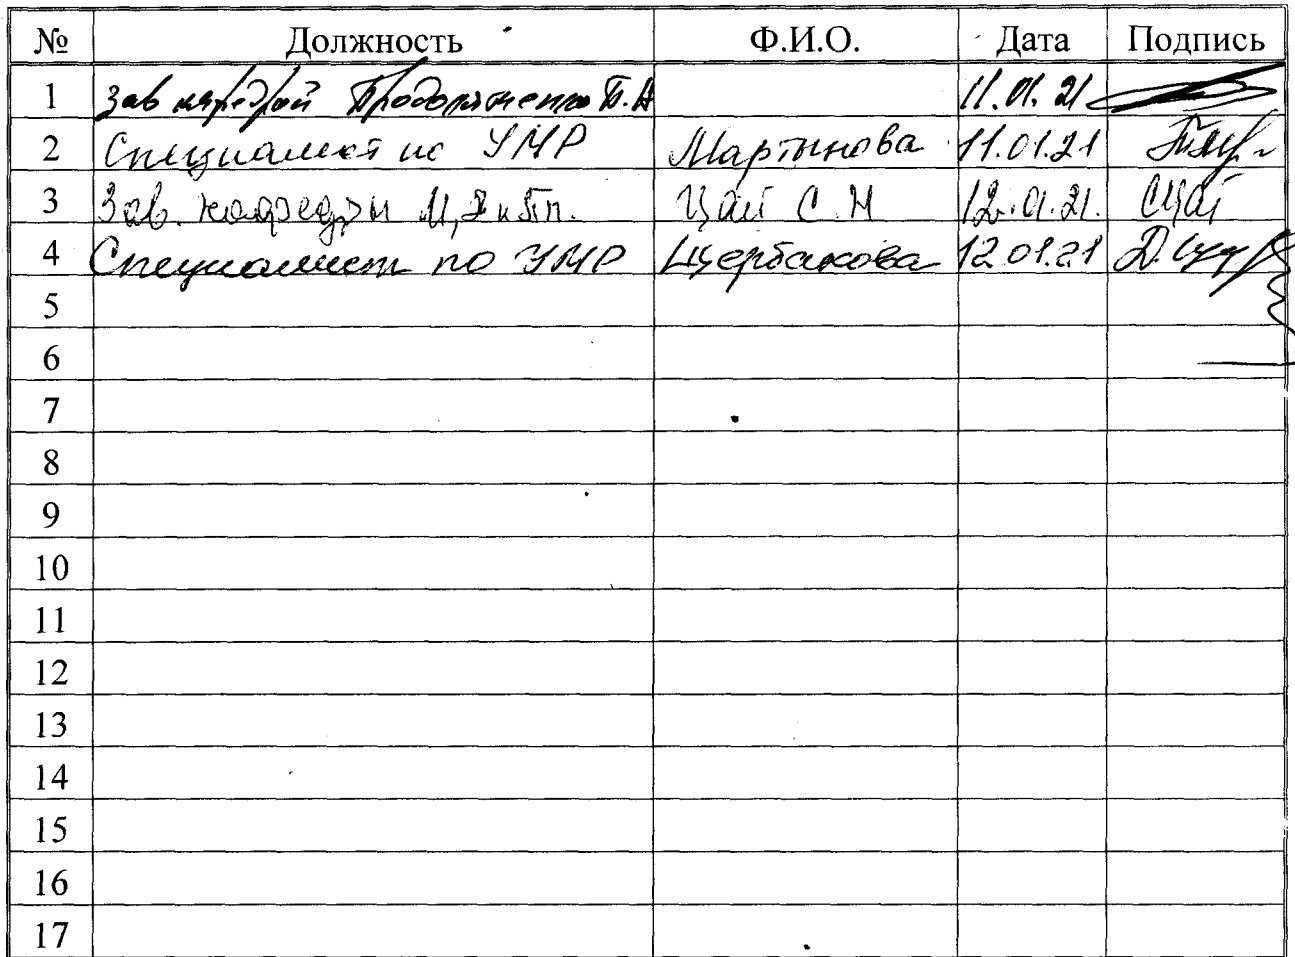 № Должность Ф.И.О. Дата Подпись
1 Зав кафедрой 11.01.21
2 Специалист по УМР Мартынова 11.01.21
3 Зав. кафедры Цай С.Н 12.01.21. СЦай
4 Специалист по УМР Щербакова 12.01.21
5
6
7
8
9
10
11
12
13
14
15
16
17